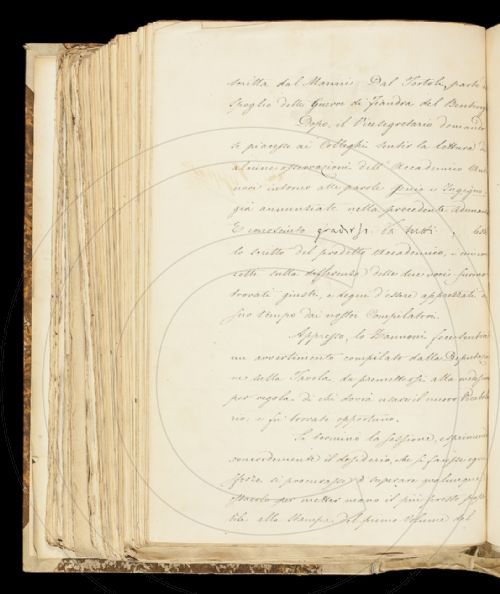 scritta dal Mannis. Dal Tortoli, parte
Spoglio delle Guerre di Fiandra del
Dopo, il Vicesegretario domandò
se piacesse ai Colleghi sentir la lettura
alcune osservazioni dell'Accademico
intorno alle parole Genio e Ingegno,
già annunziate nella precedente Adunanza
E conosciuto da tutti,
lo scritto del predetto Accademico,
sulla differenza delle due voci furono
trovati giusti, e degni d'essere apprezzati a
suo tempo dai nostri Compilatori.
Appresso, lo Zannoni
un avvertimento compilato dalla
della Tavola da premettersi alla
per regola di chi dovrà usare il nuovo
e fu trovato opportuno.
Si terminò la sessione, esprimendo
concordemente il desiderio, che si facesse ogni
sforzo, si procurasse di superare qualunque
ostacolo per metter mano il più presto
alla stampa del primo volume del